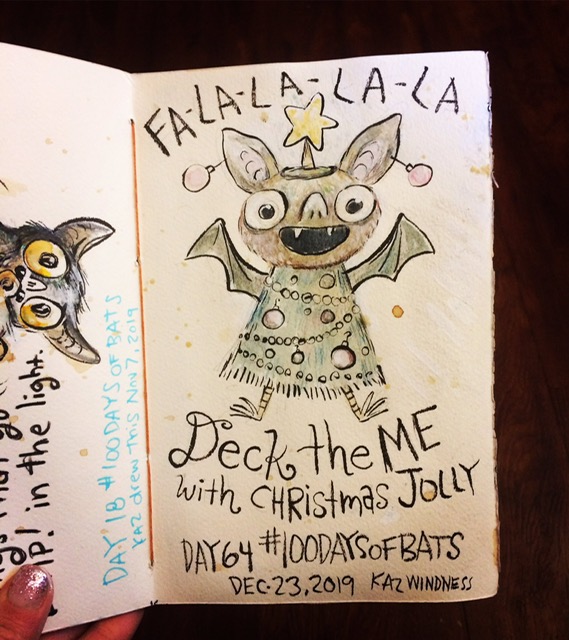 in the light.
DAY 18 #100DAYSOFBATS
KAZ drew this Nov 7, 2019
FA-LA-LA-LA-LA
Deck the ME
with CHRistmas JOLLY
DAY 64 #100DAYSOFBATS
DEC-23, 2019 KAZ WINDNESS